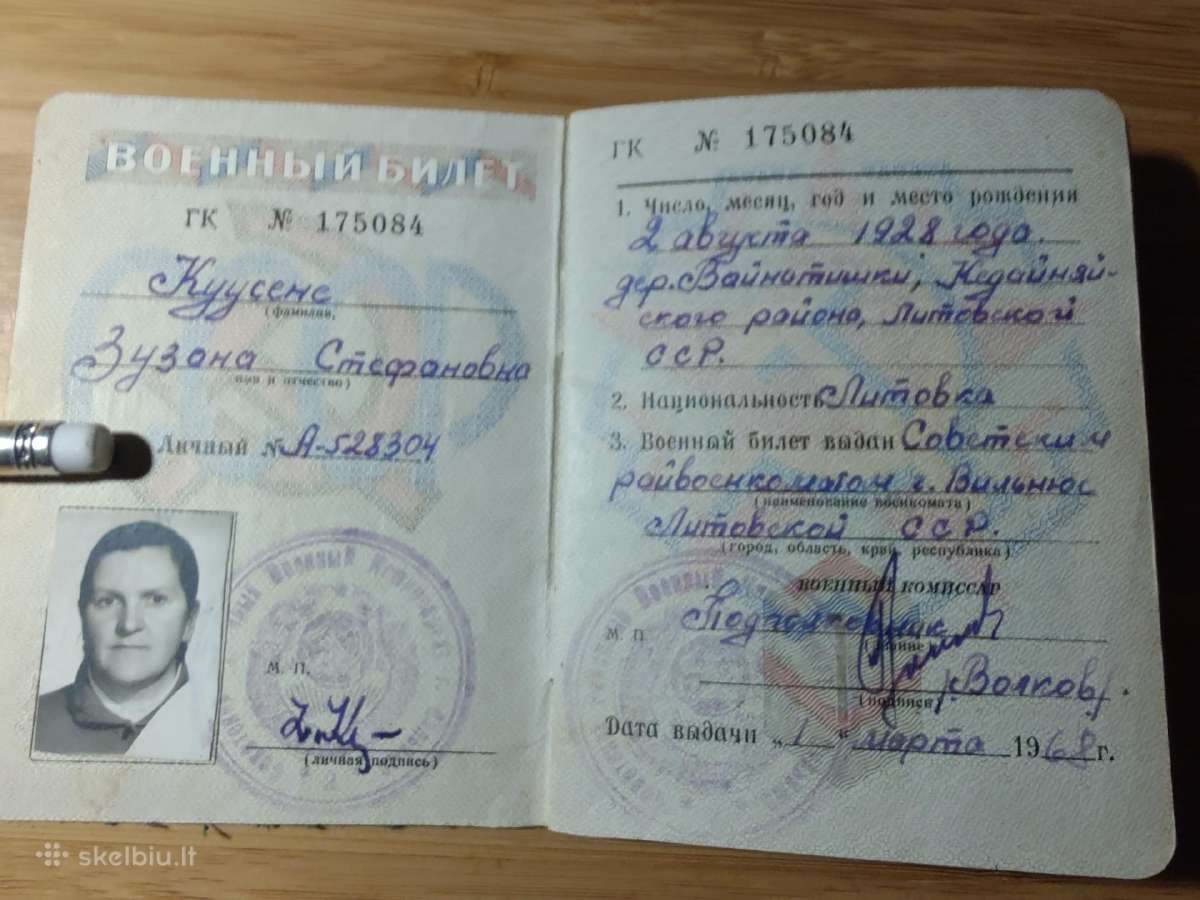 ВОЕННЫЙ БИЛЕТ
ГК № 175084
Куусене
(фамилия,
Зузана Стефановна
имя и отчество)
Личный № А-528304
М. П.
(личная подпись)
ГК № 175084
1. Число, месяц, год и место рождения
2 августа 1928 года.
дер. Вайнотишки, Кедайняй-
ского района, Литовской
ССР.
2. Национальность Литовка
3. Военный билет выдан Советским
райвоенкоматом г. Вильнюс
(наименование военкомата)
Литовской ССР.
(город, область, край, республика)
ВОЕННЫЙ КОМИССАР
М. П. Подполковник
(звание)
/Волков/.
(подпись)
Дата выдачи „1" марта 1968 г.
skelbiu.lt